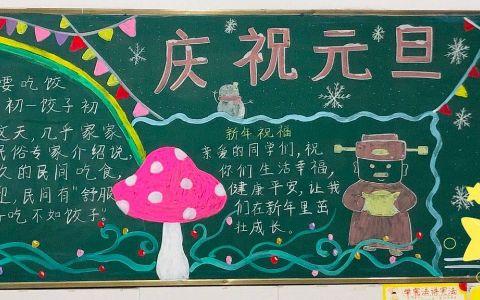 庆祝元旦
要吃饺
初一饺子初
天，几乎家家
民俗专家介绍说，
久的民间吃食，
民间有"舒服
吃不如饺子"
新年祝福
亲爱的同学们，祝
你们生活幸福，
健康平安，让我
们在新年里茁
壮成长。
学宪法讲宪法